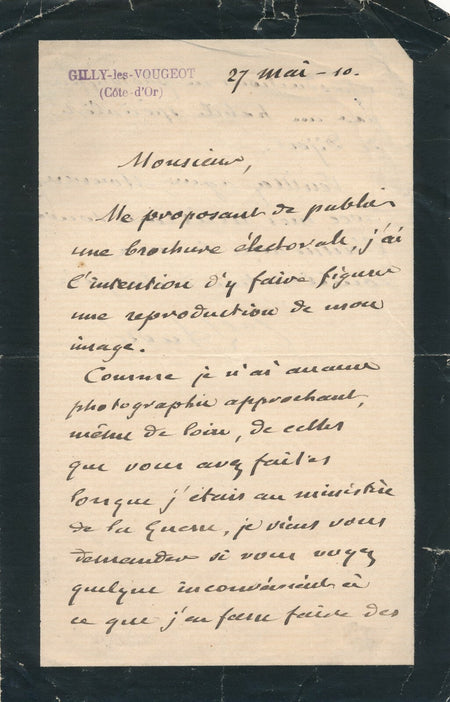 GILLY-les-VOUGEOT
(Côte-d'Or)
27 mai - 10.
Monsieur,
Me proposant de publier
une brochure électorale, j'ai
l'intention d'y faire figurer
une reproduction de mon
image.
Comme je n'ai aucune
photographie approchant,
même de loin, de celles
que vous avez faites
lorsque j'étais au ministère
de la Guerre, je viens vous
demander si vous voyez
quelque inconvénient à
ce que j'en fasse faire des